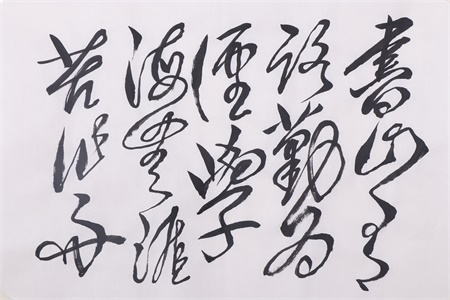 書山有
路勤為
徑學
海無涯
苦作舟